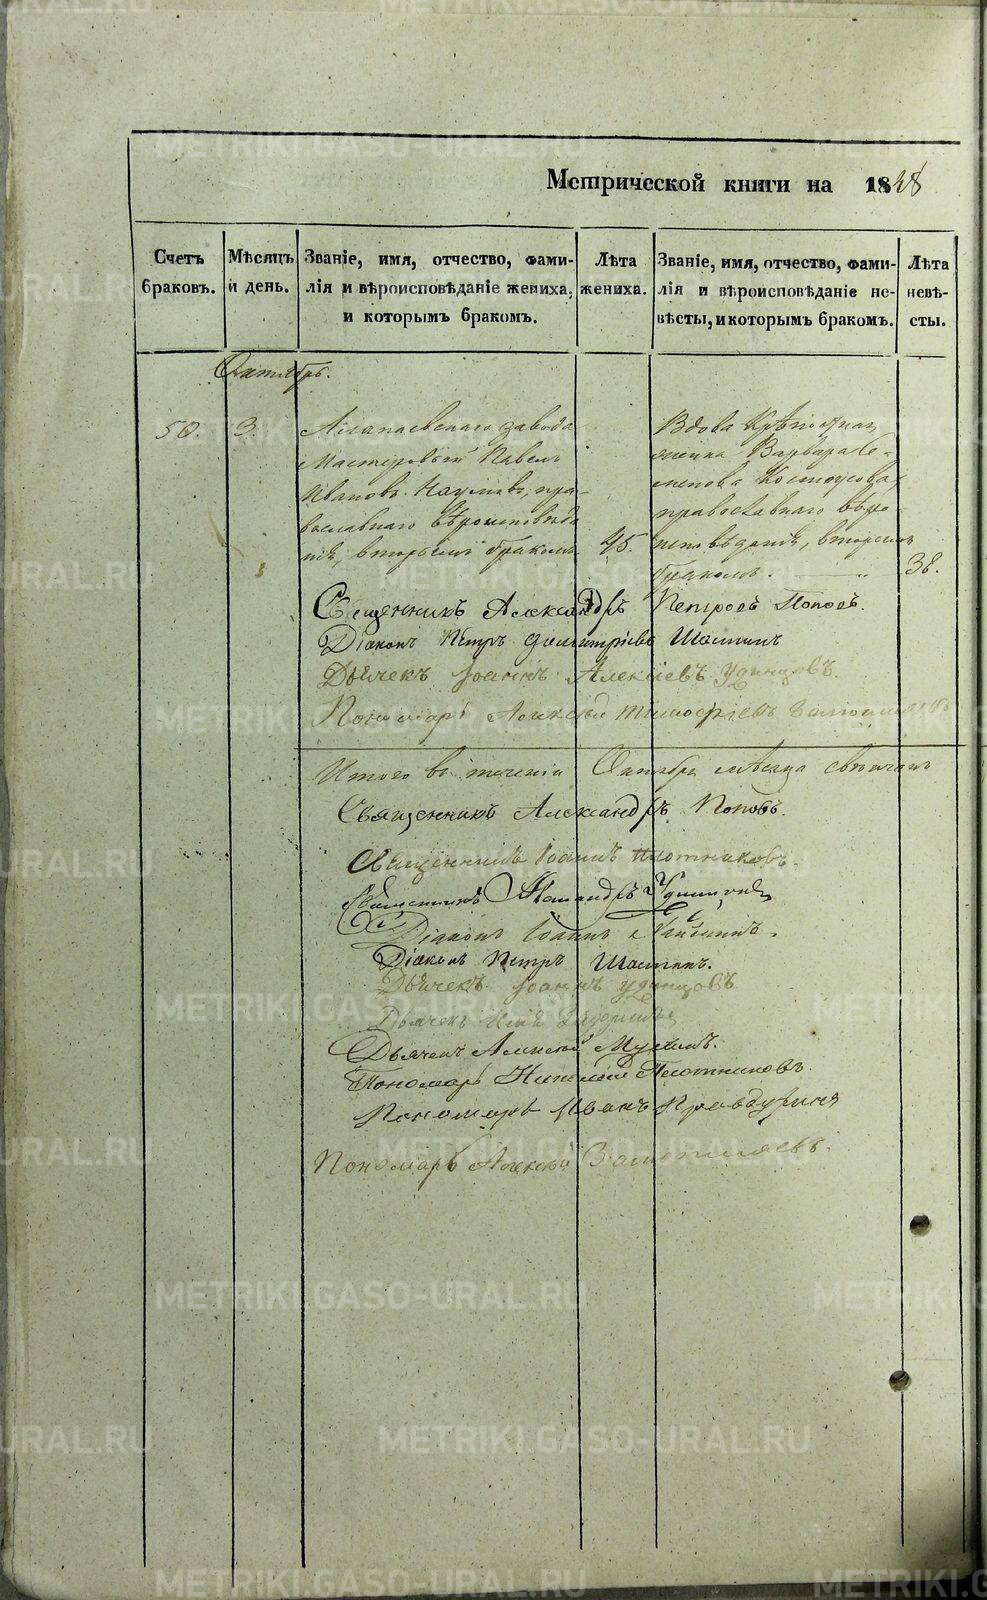 Метрической книги на 1848
Счетъ браковъ.
Мѣсяцъ и день.
Званіе, имя, отчество, фами-
лія и вѣроисповѣданіе жениха,
и которымъ бракомъ.
Лѣта
жениха.
Званіе, имя, отчество, фами-
лія и вѣроисповѣданіе не-
вѣсты, и которымъ бракомъ.
Лѣта
невѣ-
сты.
Октябрь.
50.
3.
Алапаевскаго завода
Мастеровый Павелъ
Ивановъ Наумовъ, пра-
вославнаго вѣроисповѣда
нія, вторымъ бракомъ
45.
Вдова Крѣпостная
жинка Варвара Се-
менова Костоусова,
православнаго вѣро
исповѣданія, вторымъ
бракомъ.
38.
Священникъ Александръ Петровъ Поповъ.
Діаконъ Петръ Димитріевъ Шастинъ
Дьячекъ Іоаннъ Алексіевъ Удинцовъ.
Пономарь Алексѣй Тимофіевъ
Итого въ теченіи Октября мѣсяца
Священникъ Александръ Поповъ.
Священникъ Іоаннъ Плотниковъ.
Священникъ
Діаконъ Іоаннъ
Діаконъ Петръ Шастинъ.
Дьячекъ Іоаннъ Удинцовъ
Дьячекъ
Дьячекъ Алексѣй
Пономарь Николай Плотниковъ.
Пономарь Иванъ Правдухинъ
Пономарь Алексѣй
METRIKI.GASO-URAL.RU